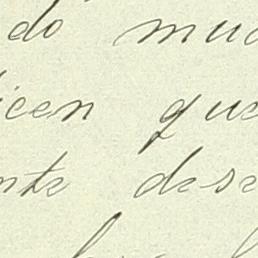 do muc
icen que
nte dese